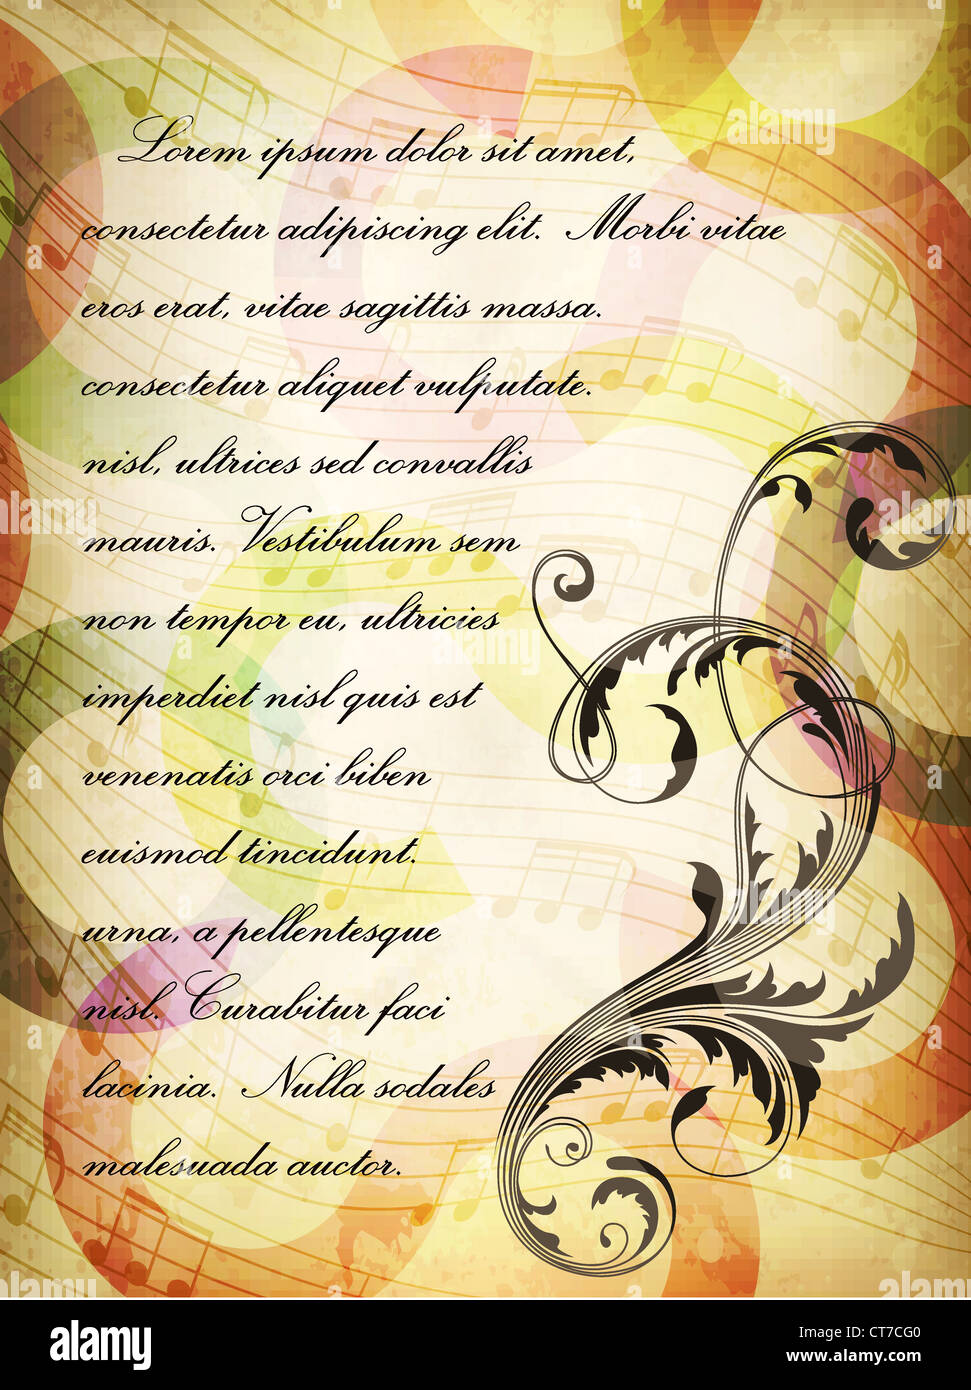 Lorem ipsum dolor sit amet,
consectetur adipiscing elit. Morbi vitae
eros erat, vitae sagittis massa.
consectetur aliquet vulputate.
nisl, ultrices sed convallis
mauris. Vestibulum sem
non tempor eu, ultricies
imperdiet nisl quis est
venenatis orci biben
euismod tincidunt.
urna, a pellentesque
nisl. Curabitur faci
lacinia. Nulla sodales
malesuada auctor.
alamy
alamy
alamy
alamy
alamy
alamy
alamy
alamy
Image ID: CT7CG0
www.alamy.com